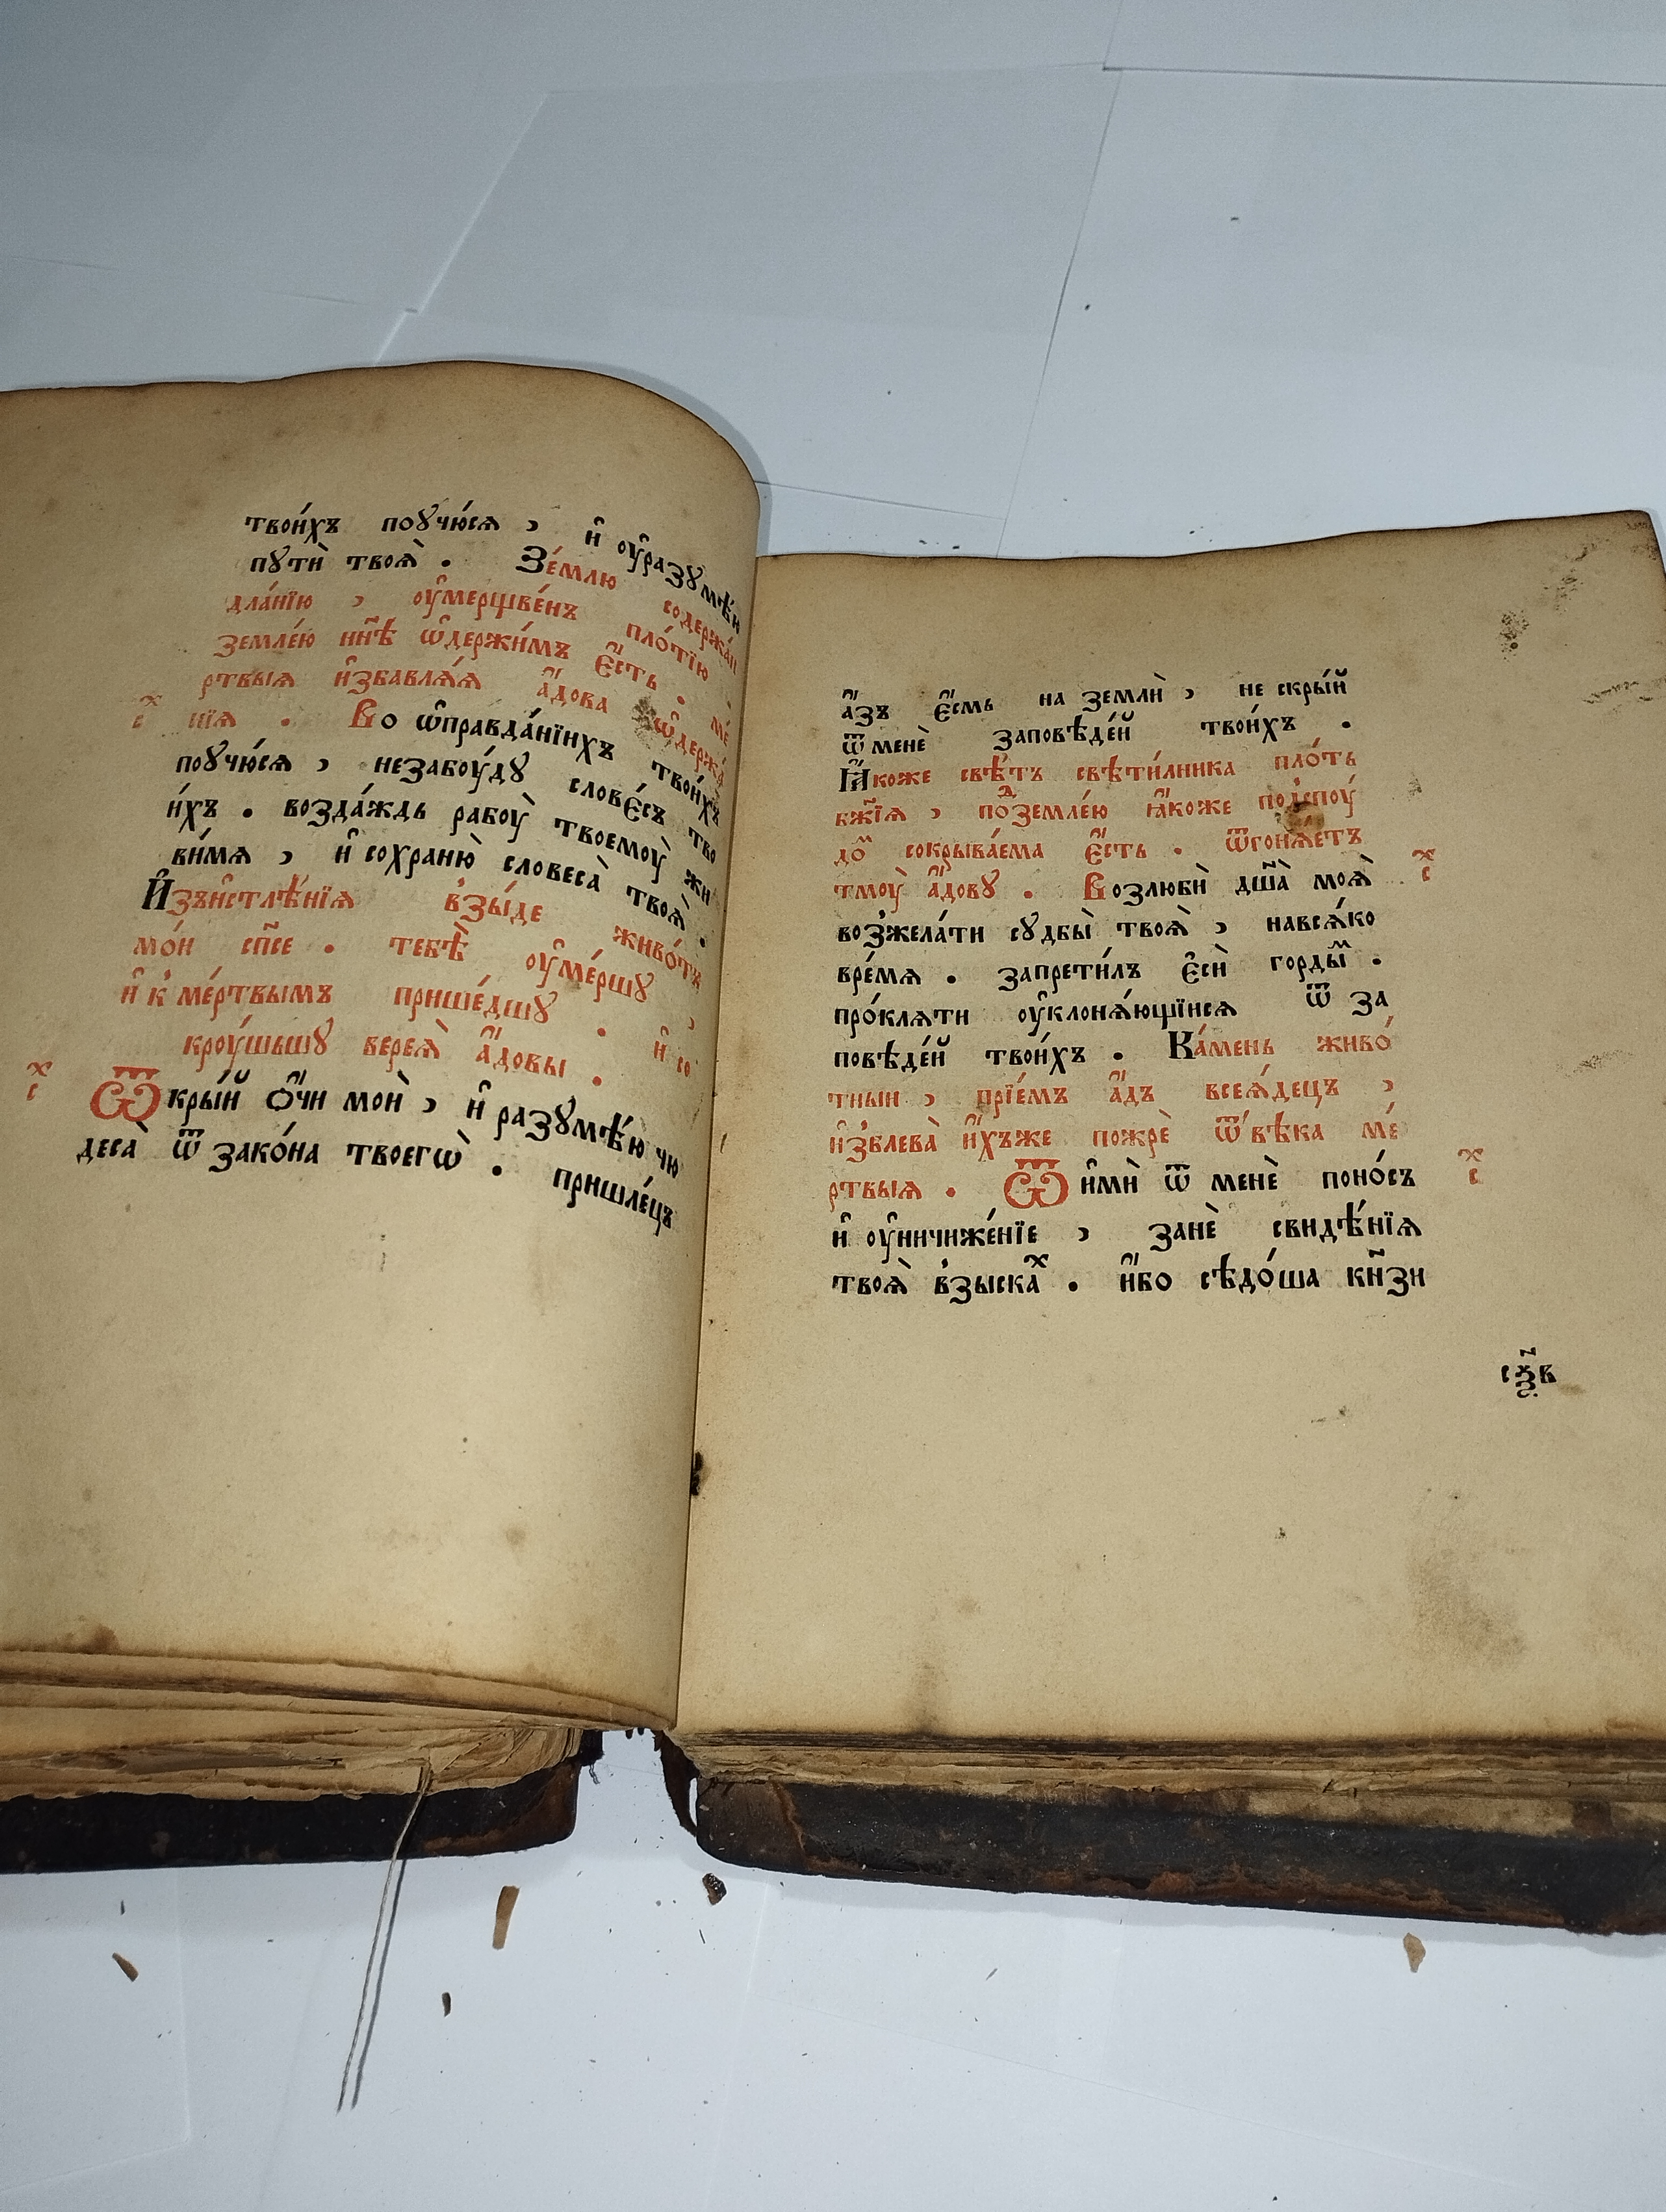 твои́хъ поꙋчю́сѧ , и҆ оу҆разꙋмѣ́ю
пꙋтѝ твоѧ̀ . Зе́млю содержа́и
дла́нїю , оу҆мерщве́нъ пло́тїю
земле́ю нн҃ѣ ѡ҆держи́мъ є҆́сть . ме́
ртвыѧ и҆збавлѧ́ѧ а҆́дова ѡ҆держа́
х҃ с нїѧ . Во ѡ҆правда́нїихъ твои́хъ
поꙋчю́сѧ , незабоу́дꙋ слове́съ тво
и́хъ . возда́ждь рабоу̀ твоемоу̀ жи
ви́мѧ , и҆ сохраню̀ словеса̀ твоѧ̀ .
И҆зъи҆стлѣ́нїѧ взы́де живо́тъ
мо́и сп҃се . тебѣ̀ оу҆ме́ршꙋ ,
и҆ к ме́ртвымъ прише́дшꙋ . и҆ со
кроу́шьшꙋ вереѧ̀ а҆́довы .
х҃ с Ѿкры́й ѻ҆́чи моѝ , и҆ разꙋмѣ́ю чю
деса̀ ѿ зако́на твоегѡ̀ . пришле́цъ
а҆́зъ є҆́смь на землѝ , не скры́й
ѿ менѐ заповѣде́й твои́хъ .
Ꙗ҆́коже свѣ́тъ свѣти́лника пло́ть
бж҃їѧ , поⷣ земле́ю ꙗ҆́коже подспоу́
доⷨ сокрыва́ема є҆́сть . ѿгонѧ́етъ
тмоу̀ а҆́довꙋ . Возлюбѝ дш҃а̀ моѧ̀ х҃ с
возжела́ти сꙋдбы̀ твоѧ̀ , навсѧ́ко
вре́мѧ . запрети́лъ є҆сѝ гордыⷨ .
про́клѧти оу҆клонѧ́ющїисѧ ѿ за
повѣде́й твои́хъ . Ка́мень живо́
тныи , прїе́мъ а҆́дъ всеѧ́децъ ,
и҆зблева̀ и҆́хъже пожрѐ ѿ вѣ́ка ме́
ртвыѧ . Ѿи҆мѝ ѿ менѐ поно́съ х҃ с
и҆ оу҆ничиже́нїе , занѐ свидѣ́нїѧ
твоѧ̀ взыскаⷯ . и҆́бо сѣдо́ша кн҃зи
сѯ҃в